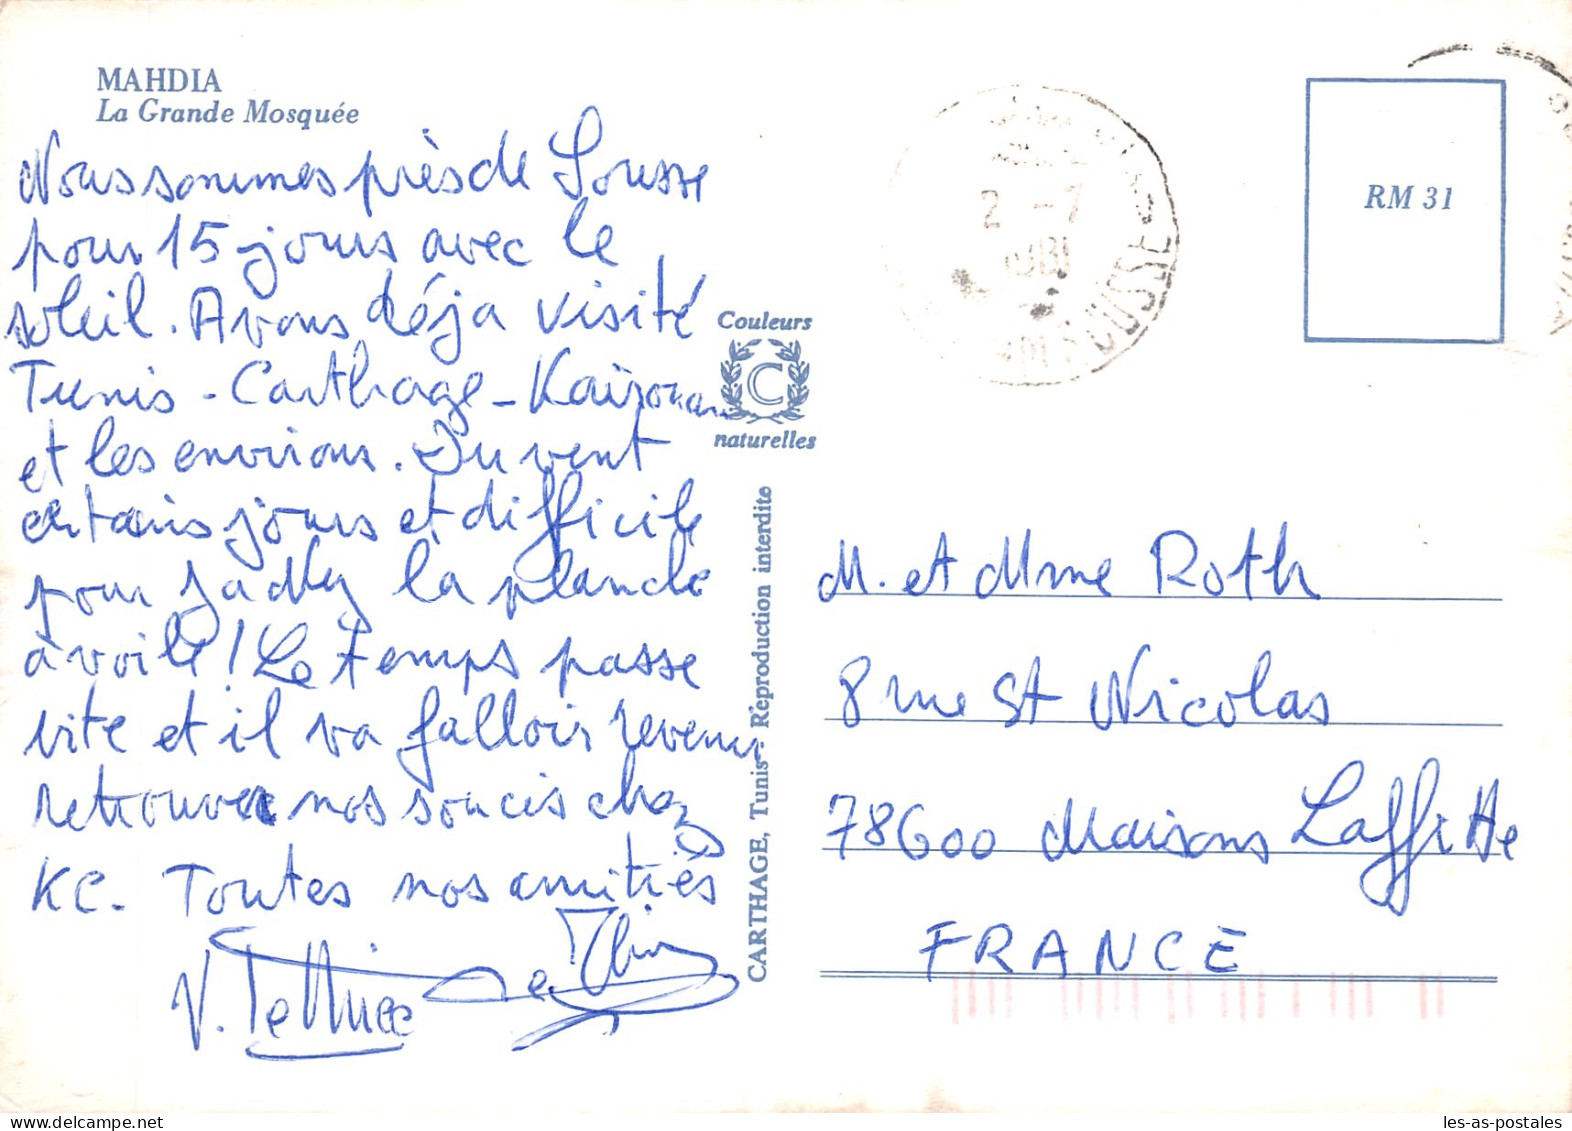 MAHDIA
La Grande Mosquée
Nous sommes près de Sousse
pour 15 jours avec le
soleil. Avons déja visité
Tunis - Carthage - Kairouan
et les environs. Du vent
certains jours et difficile
pour la planche
à voile ! Le temps passe
vite et il va falloir revenir
retrouver nos soucis chez
KC. Toutes nos amitiés
Couleurs
C
naturelles
CARTHAGE, Tunis - Reproduction interdite
2 -7
SOUSSE
RM 31
M. et Mme Roth
8 rue St Nicolas
78600 Maisons Laffitte
FRANCE
les-as-postales